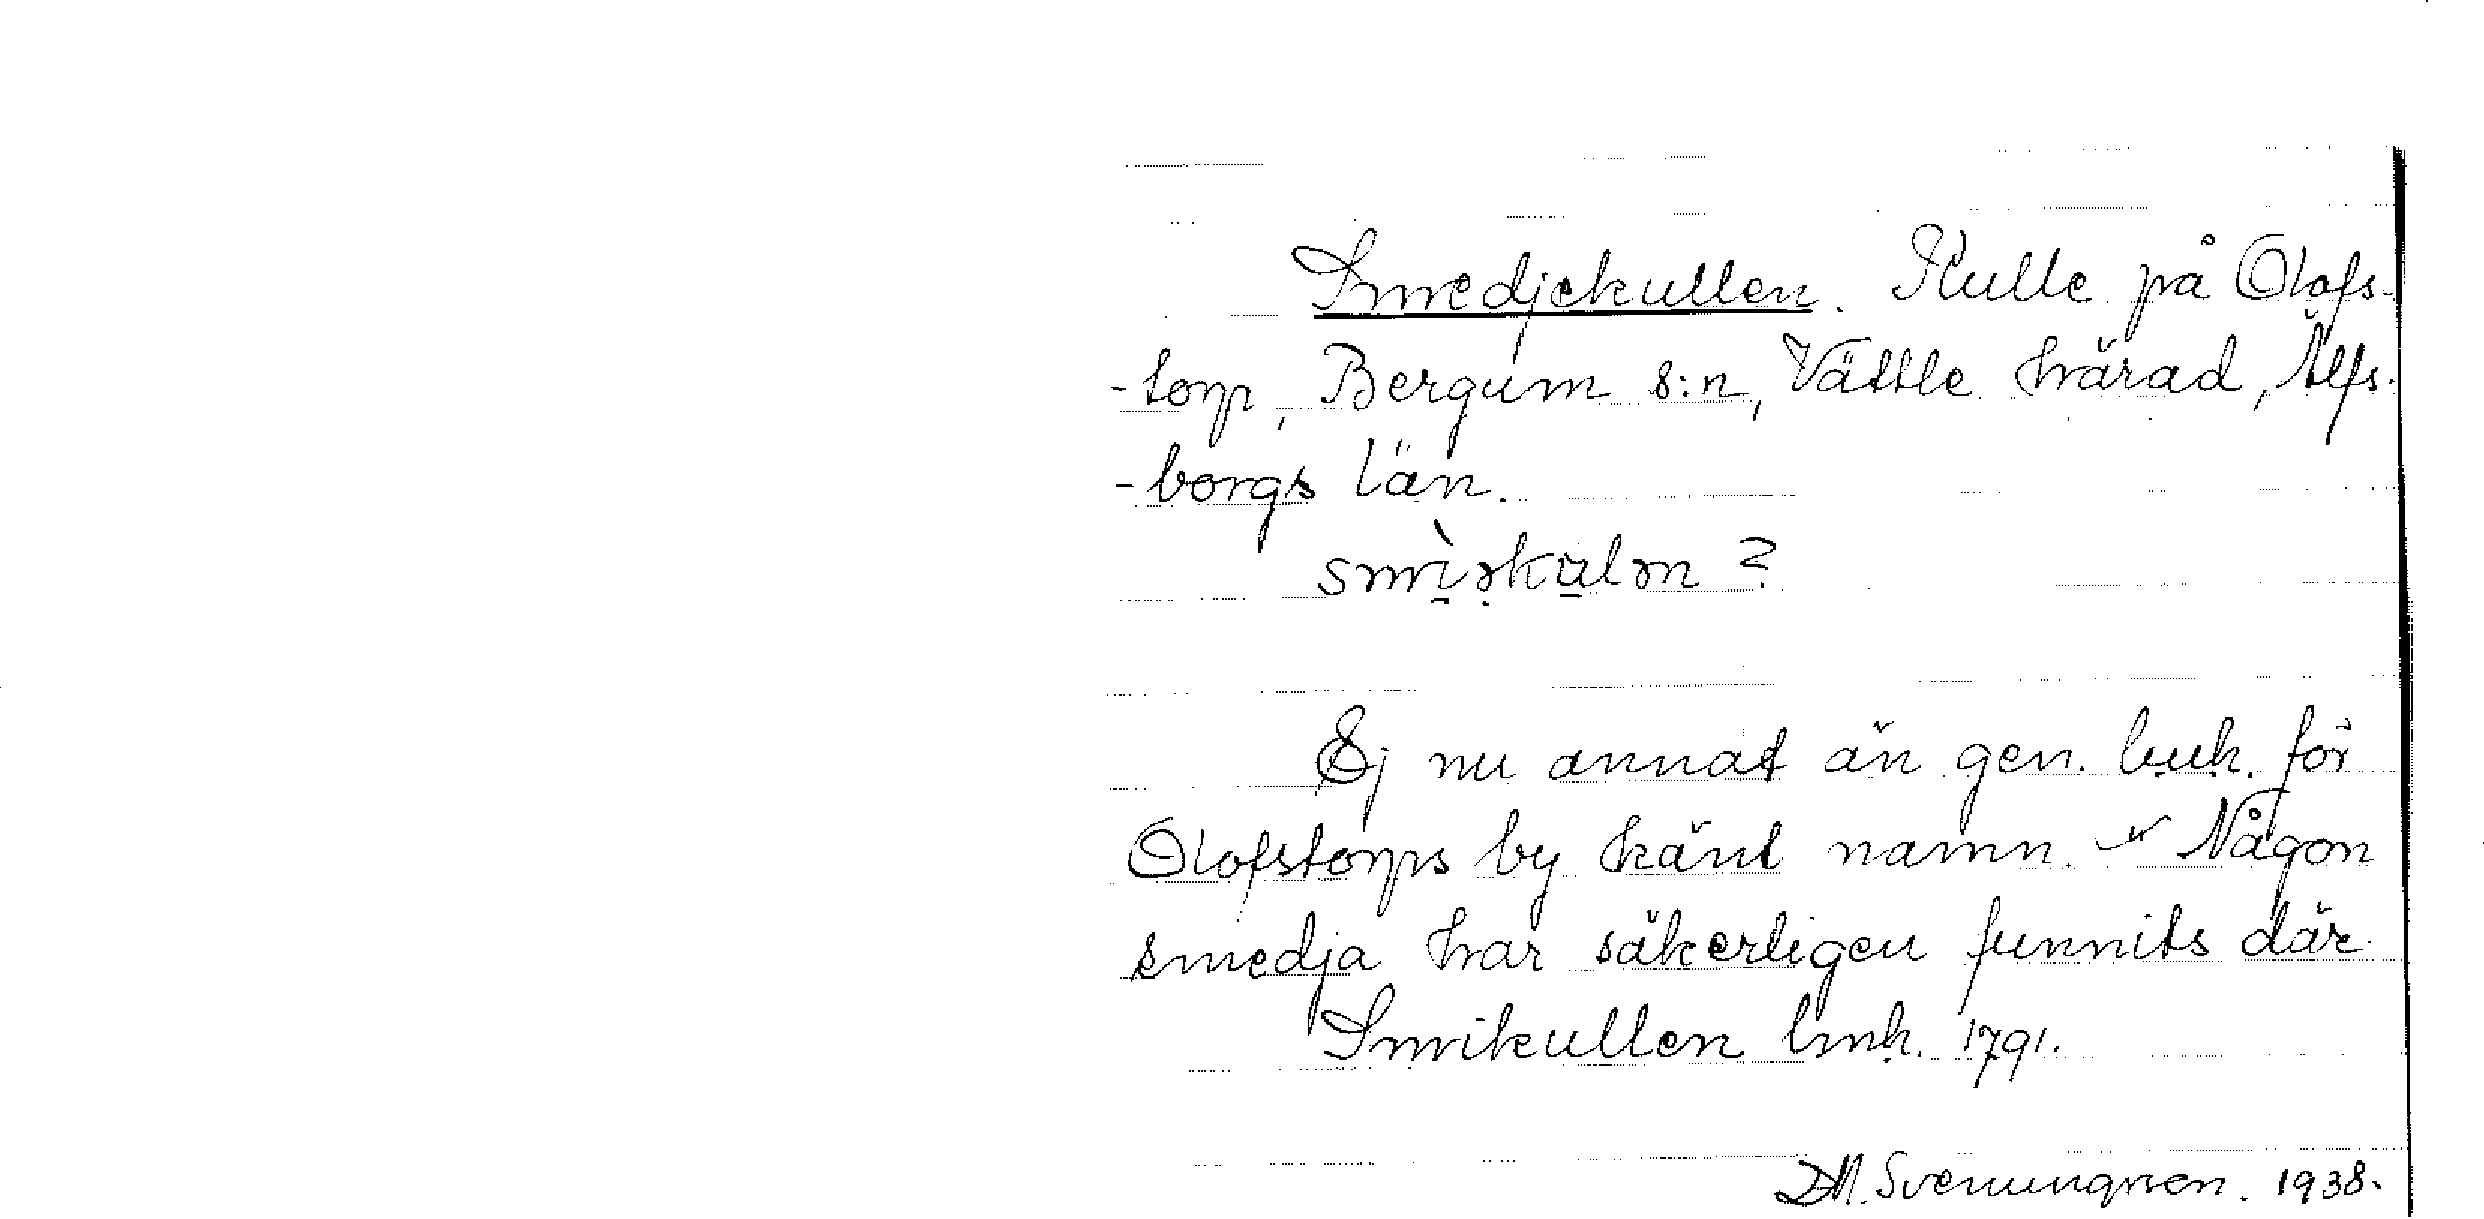 Smedjekullen. Kulle på Olofs-
-torp, Bergum s:n, Vättle härad, Älfs-
-borgs län.
smìəkulən ?
Ej nu annat än gen. l.u.k. för
Olofstorps by känt namn. Någon
smedja har säkerligen funnits där.
Smikullen lmk. 1791.
D.M. Svenungsson. 1938.